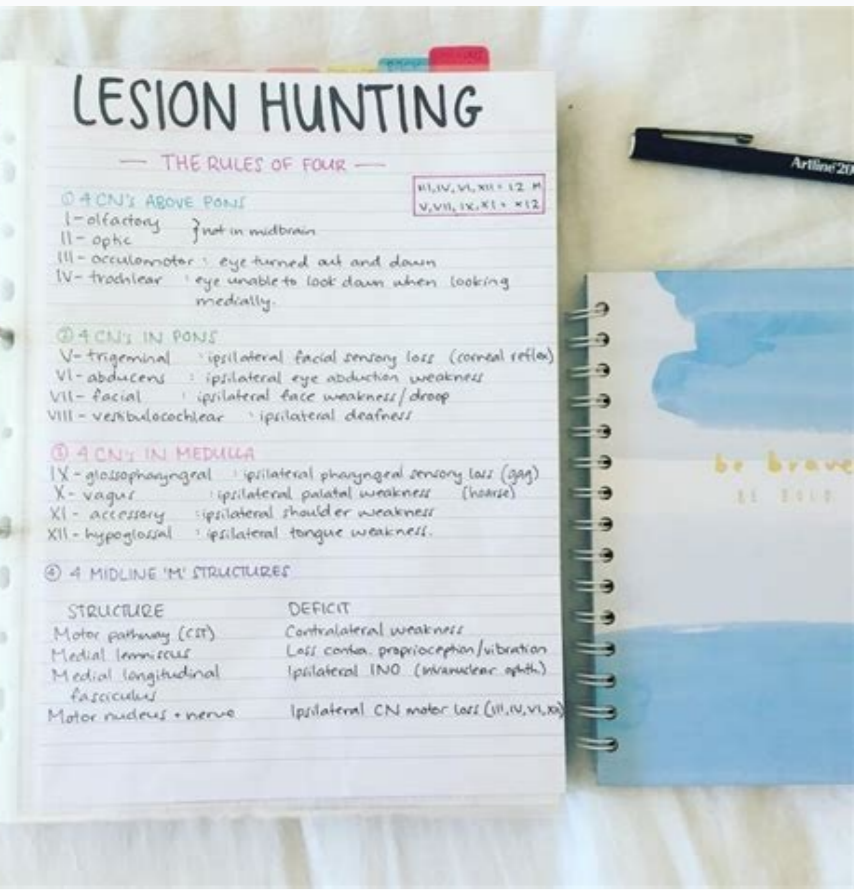 LESION HUNTING
— THE RULES OF FOUR —
III, IV, VI, XII = 12 M
V, VII, IX, XI = x12
① 4 CN's ABOVE PONS
I - olfactory
II - optic } not in midbrain
III - occulomotor : eye turned out and down
IV - trochlear : eye unable to look down when looking
medially.
② 4 CN's IN PONS
V - trigeminal : ipsilateral facial sensory loss (corneal reflex)
VI - abducens : ipsilateral eye abduction weakness
VII - facial : ipsilateral face weakness/droop
VIII - vestibulocochlear : ipsilateral deafness
③ 4 CN's IN MEDULLA
IX - glossopharyngeal : ipsilateral pharyngeal sensory loss (gag)
X - vagus : ipsilateral palatal weakness (hoarse)
XI - accessory : ipsilateral shoulder weakness
XII - hypoglossal : ipsilateral tongue weakness.
④ 4 MIDLINE 'M' STRUCTURES
STRUCTURE DEFICIT
Motor pathway (CST) Contralateral weakness
Medial lemniscus Loss contra. proprioception/vibration
Medial longitudinal Ipsilateral INO (intranuclear ophth.)
fasciculus
Motor nucleus + nerve Ipsilateral CN motor loss (III, IV, VI, XII)
Artline 20
be brave
BE BOLD